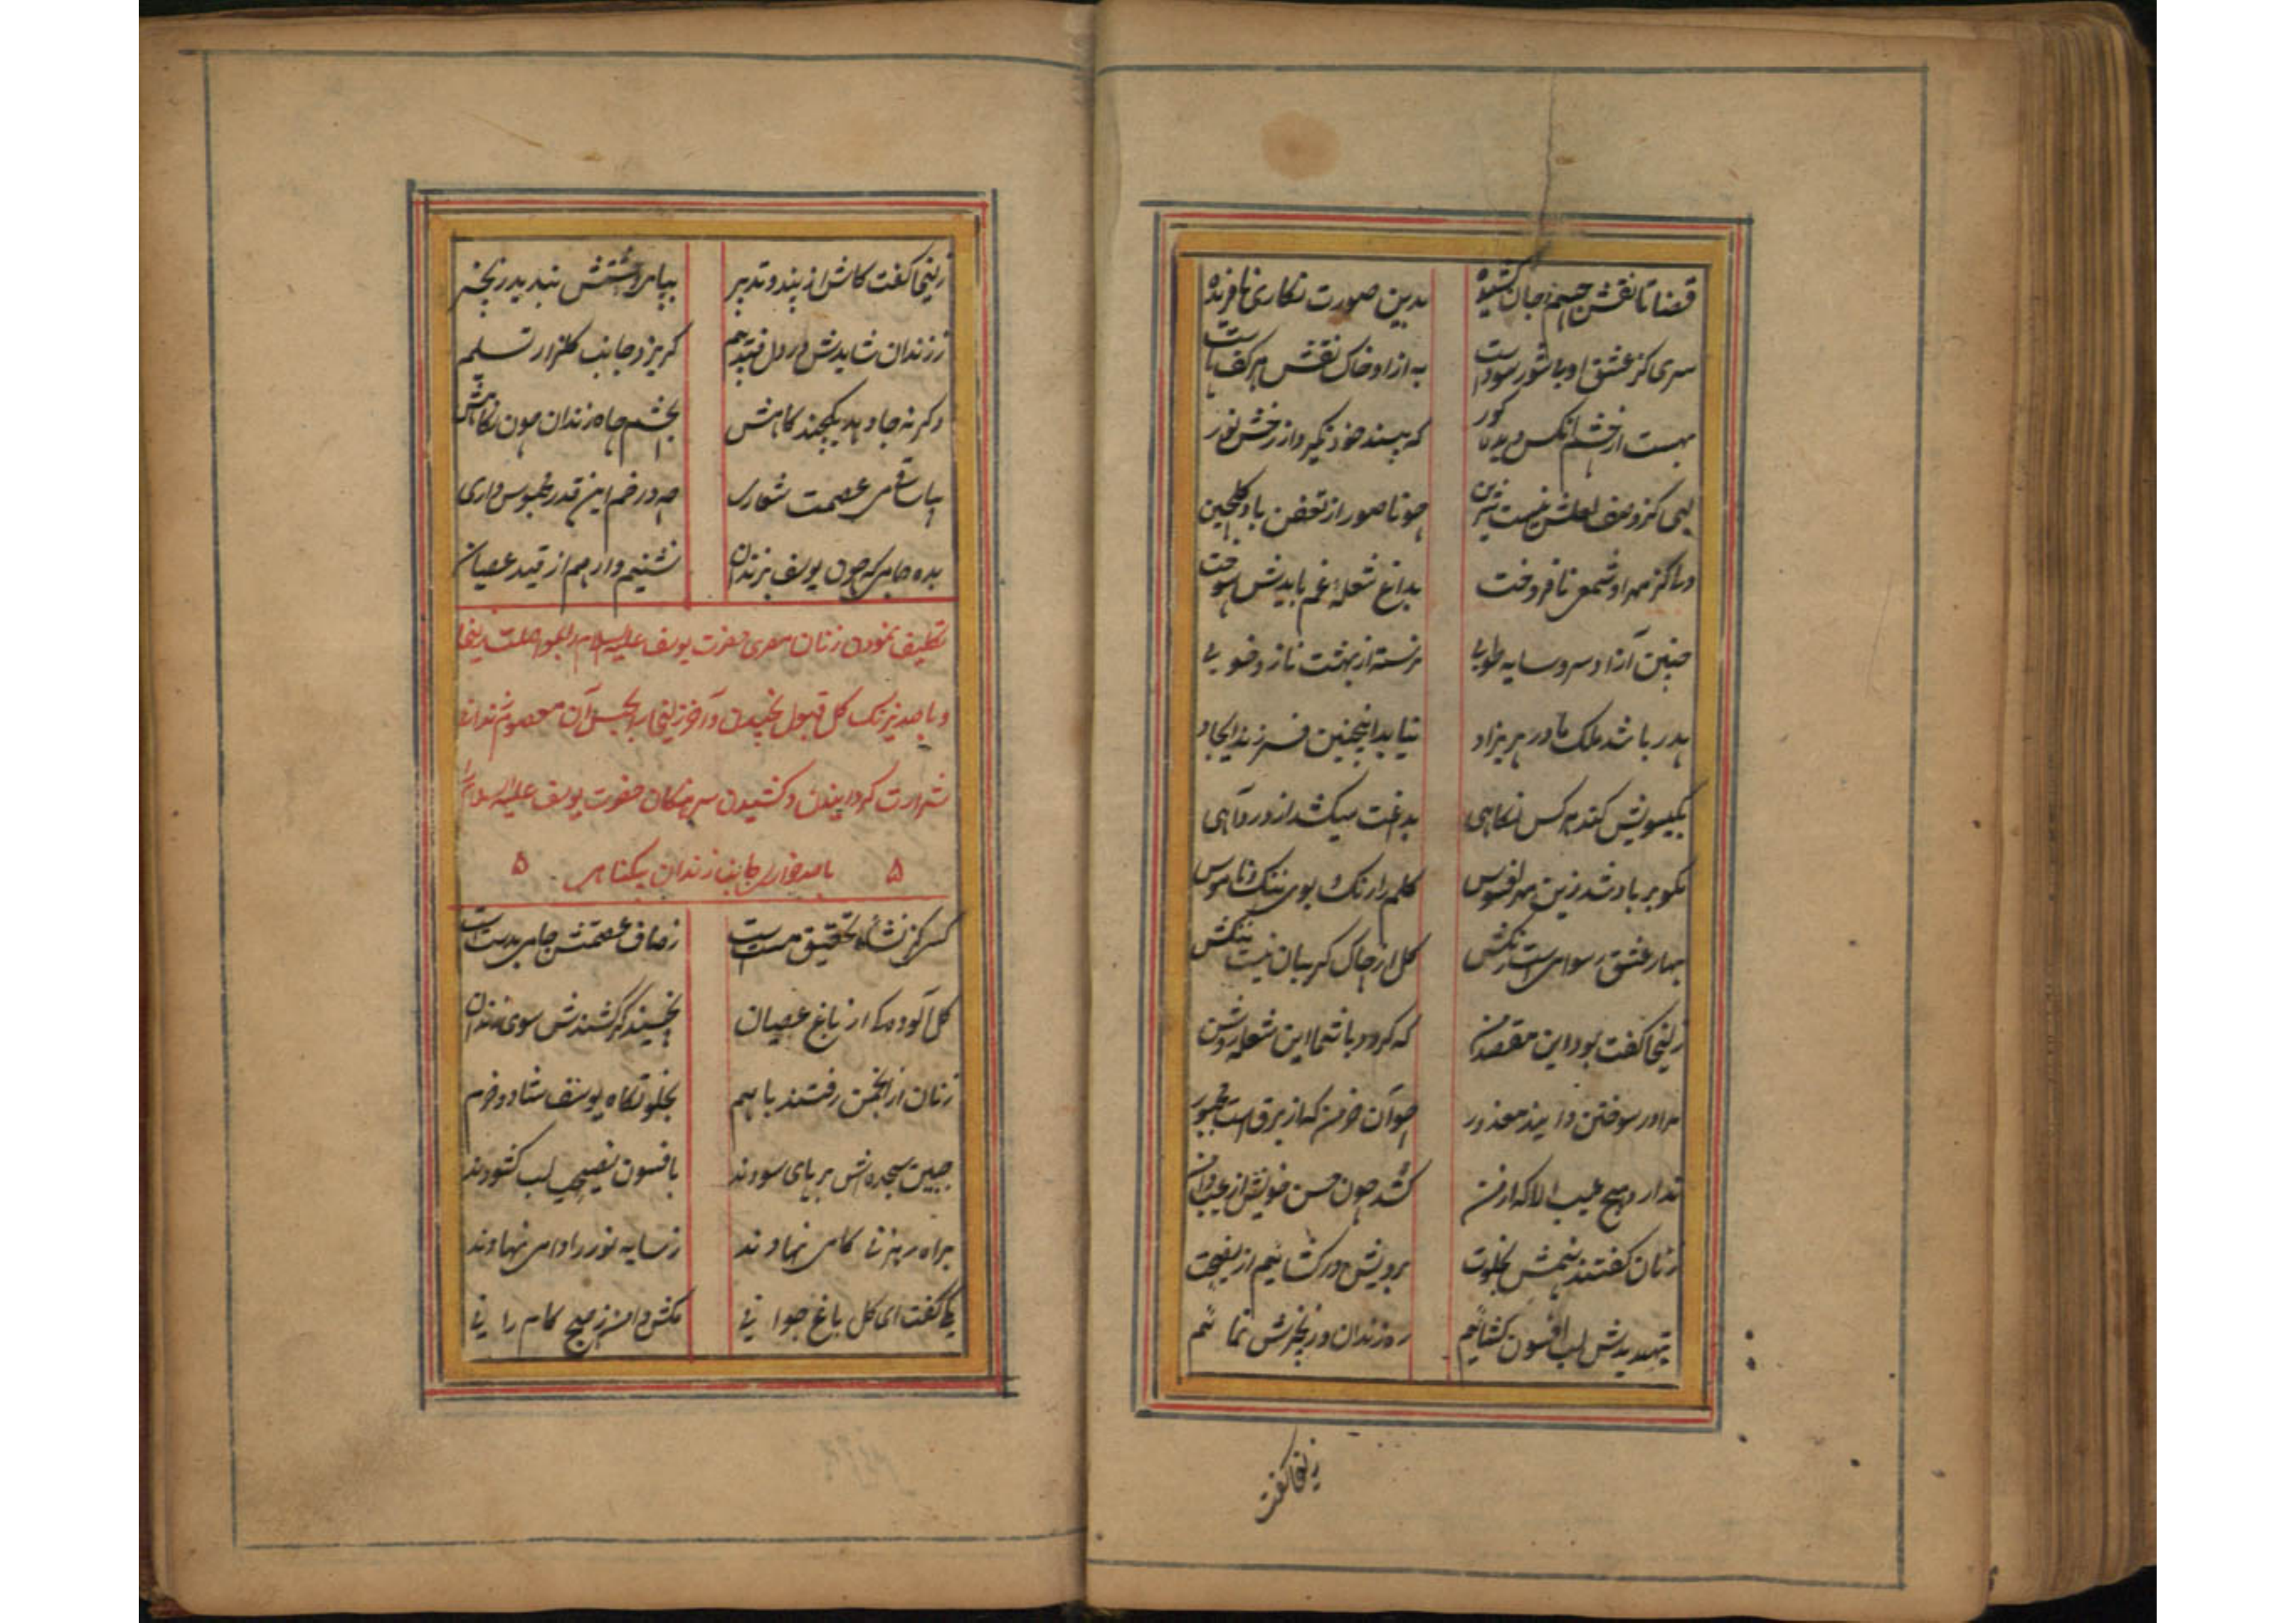 قضا تا نقش جسم و جان کشیده بدین صورت نگاری نافریده
سری کز عشق او با شور سوداست به از او خاک نقش هر کف پاست
بهست از چشم آنکس دیده کور که بیند خود نگیرد از رخش نور
لبی کز وصف لعلش نیست شیرین چو ناصور از تعفن باد
دلی کز مهر او شمعی نافروخت بداغ شعله غم بایدش سوخت
چنین آزاد سرو سایه طوبی نرسته از بهشت ناز و خوبی
پدر باشد ملک مادر پریزاد نیابد اینچنین فرزند ایجاد
بگیسویش کند هر کس نگاهی بدغت میکشد از درد آهی
نکو بر باد شد زین مهر افسوس گلم را رنگ و بوی ننگ و ناموس
بهار عشق رسوایی است رنگش گل از چاک گریبان نیست ننگش
زلیخا گفت بود این مقصد من که گردد با شما این شعله روشن
مرا در سوختن دانید معذور چو آن خرمن که از برق است مجبور
ندارد هیچ عیب الا که از من کشد چون حسن خویش از عیب دامن
زنان گفتند پنهانش بخلوت برویش در گشائیم از نصیحت
بتهدیدش لب افسون گشائیم ره زندان و زنجیرش نمائیم
زلیخا گفت
زلیخا گفت کاش از پند و تدبیر بپای وحشتش بندید زنجیر
ز زندان شایدش در دل فتد بیم گریزد جانب گلزار تسلیم
وگرنه جا دهد یکچند کاهش بچشم چاه زندان چون نگاهش
بیا ساقی عصمت شعاری چه در خم این قدر محبوس داری
بده جامی که چون یوسف بزندان نشینم وارهم از قید عصیان
تکلیف نمودن زنان مصری حضرت یوسف علیه السلام را بمواصلت زلیخا
و با صد نیرنگ گل قبول نچیدن و آخر زلیخا را بحبس آن معصوم زندان
شرارت گردانیدن و کشیدن سرهنگان حضرت یوسف علیه السلام را
۵ با صد خواری جانب زندان بیگناهی ۵
کسی کز نشأه تحقیق مست است ز صاف عصمتش جامی بدست است
گل آلوده‌ای از باغ عصیان نچیند گر کشندش سوی زندان
زنان از انجمن رفتند با هم بخلوتگاه یوسف شاد و خرم
جبین سجده‌اش بر پای سودند بافسون نصیحت لب گشودند
براه رهزنی گامی نهادند ز سایه نور را دامی نهادند
یکی گفت ای گل باغ جوانی مکش دامن ز صبح کامرانی